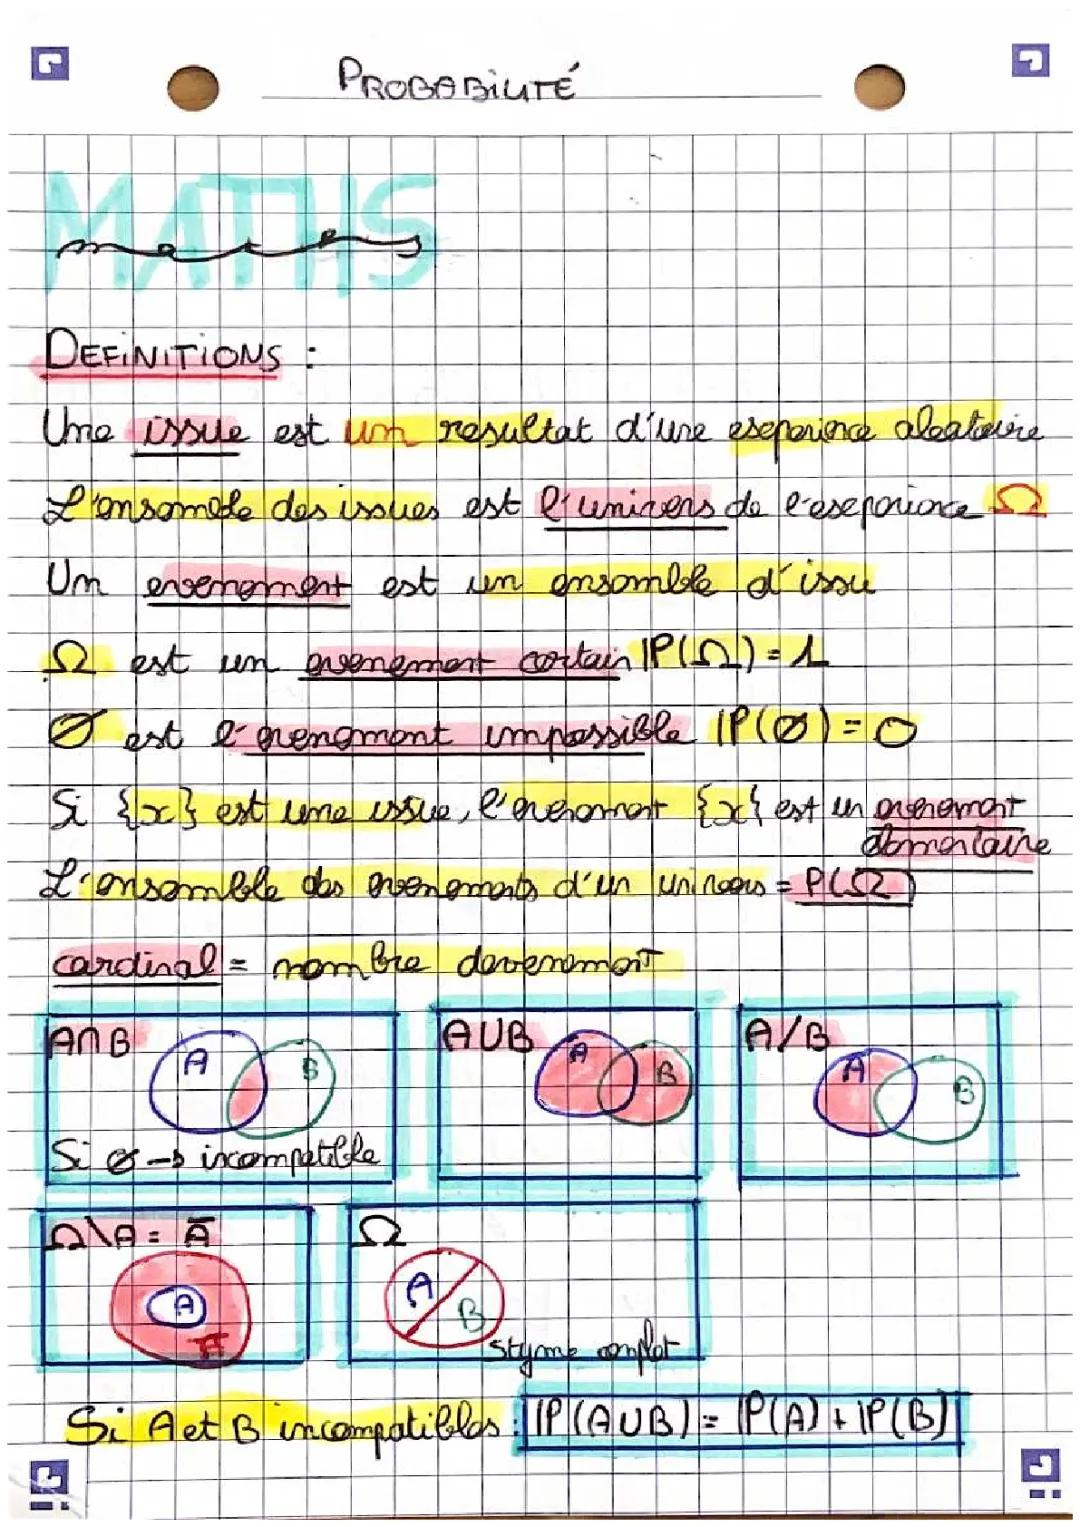 PROBABILITÉ
MATHS
maths
DEFINITIONS :
Une issue est un resultat d'une experience aleatoire
L'ensemble des issues est l'univers de l'experience Ω
Un evenement est un ensemble d'issu
Ω est un evenement certain IP(Ω) = 1
Ø est l'evenement impossible IP(Ø) = 0
Si {x} est une issue, l'evenement {x} est un evenement
elementaire
L'ensemble des evenements d'un univers = P(Ω)
cardinal = nombre devenement
A∩B
A
B
Si Ø → incompatible
AUB
A
B
A/B
A
B
Ω\A = Ā
A
Ā
Ω
A
B
styme complet
Si A et B incompatibles : IP(AUB) = IP(A) + IP(B)